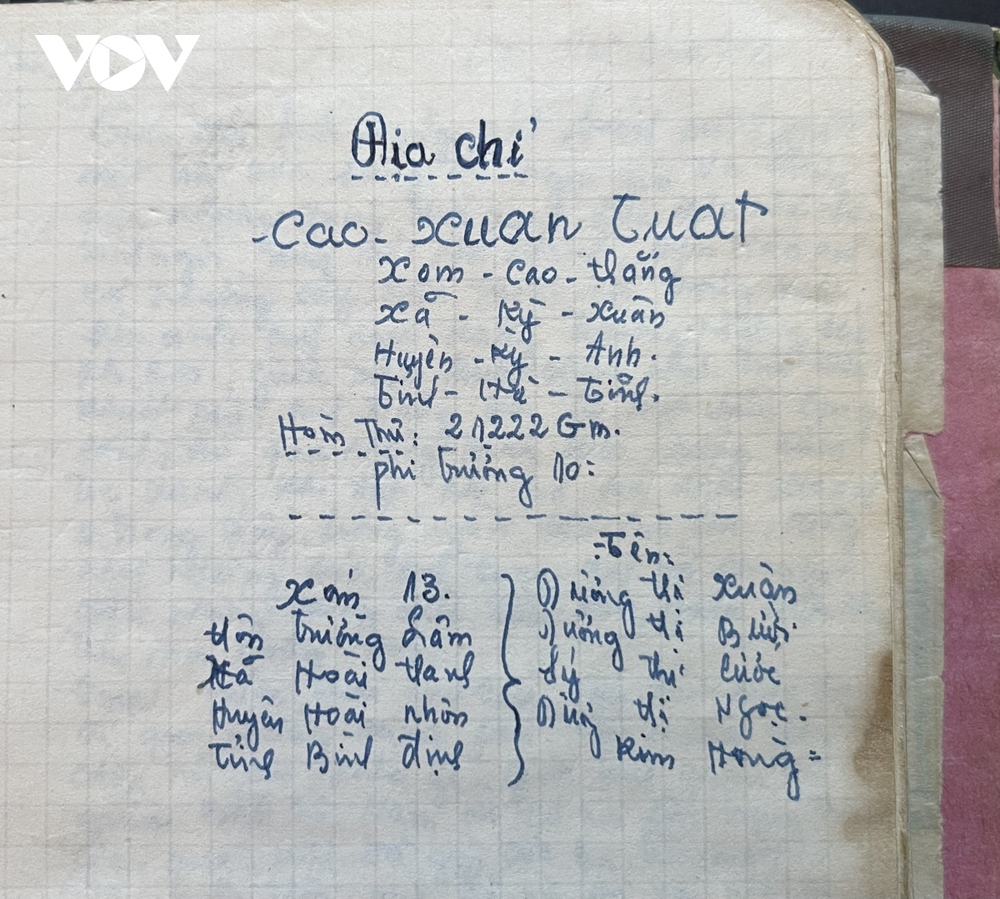 VOV
Địa chỉ
- Cao - Xuan Tuat
Xom - Cao - thắng
Xã - Kỳ - Xuân
Huyện - Kỳ - Anh.
Tỉnh - Hà - Tĩnh.
Hòm Thư: 21222 Gm.
phi trưởng 10:
:Tên:
Xóm 13.
thôn Trường Lâm
Xã Hoài thanh
Huyện Hoài nhơn
Tỉnh Bình định
Dương thị Xuân
Dương thị Bưởi
Lý thị
thị Ngọc.
Kim Hồng =